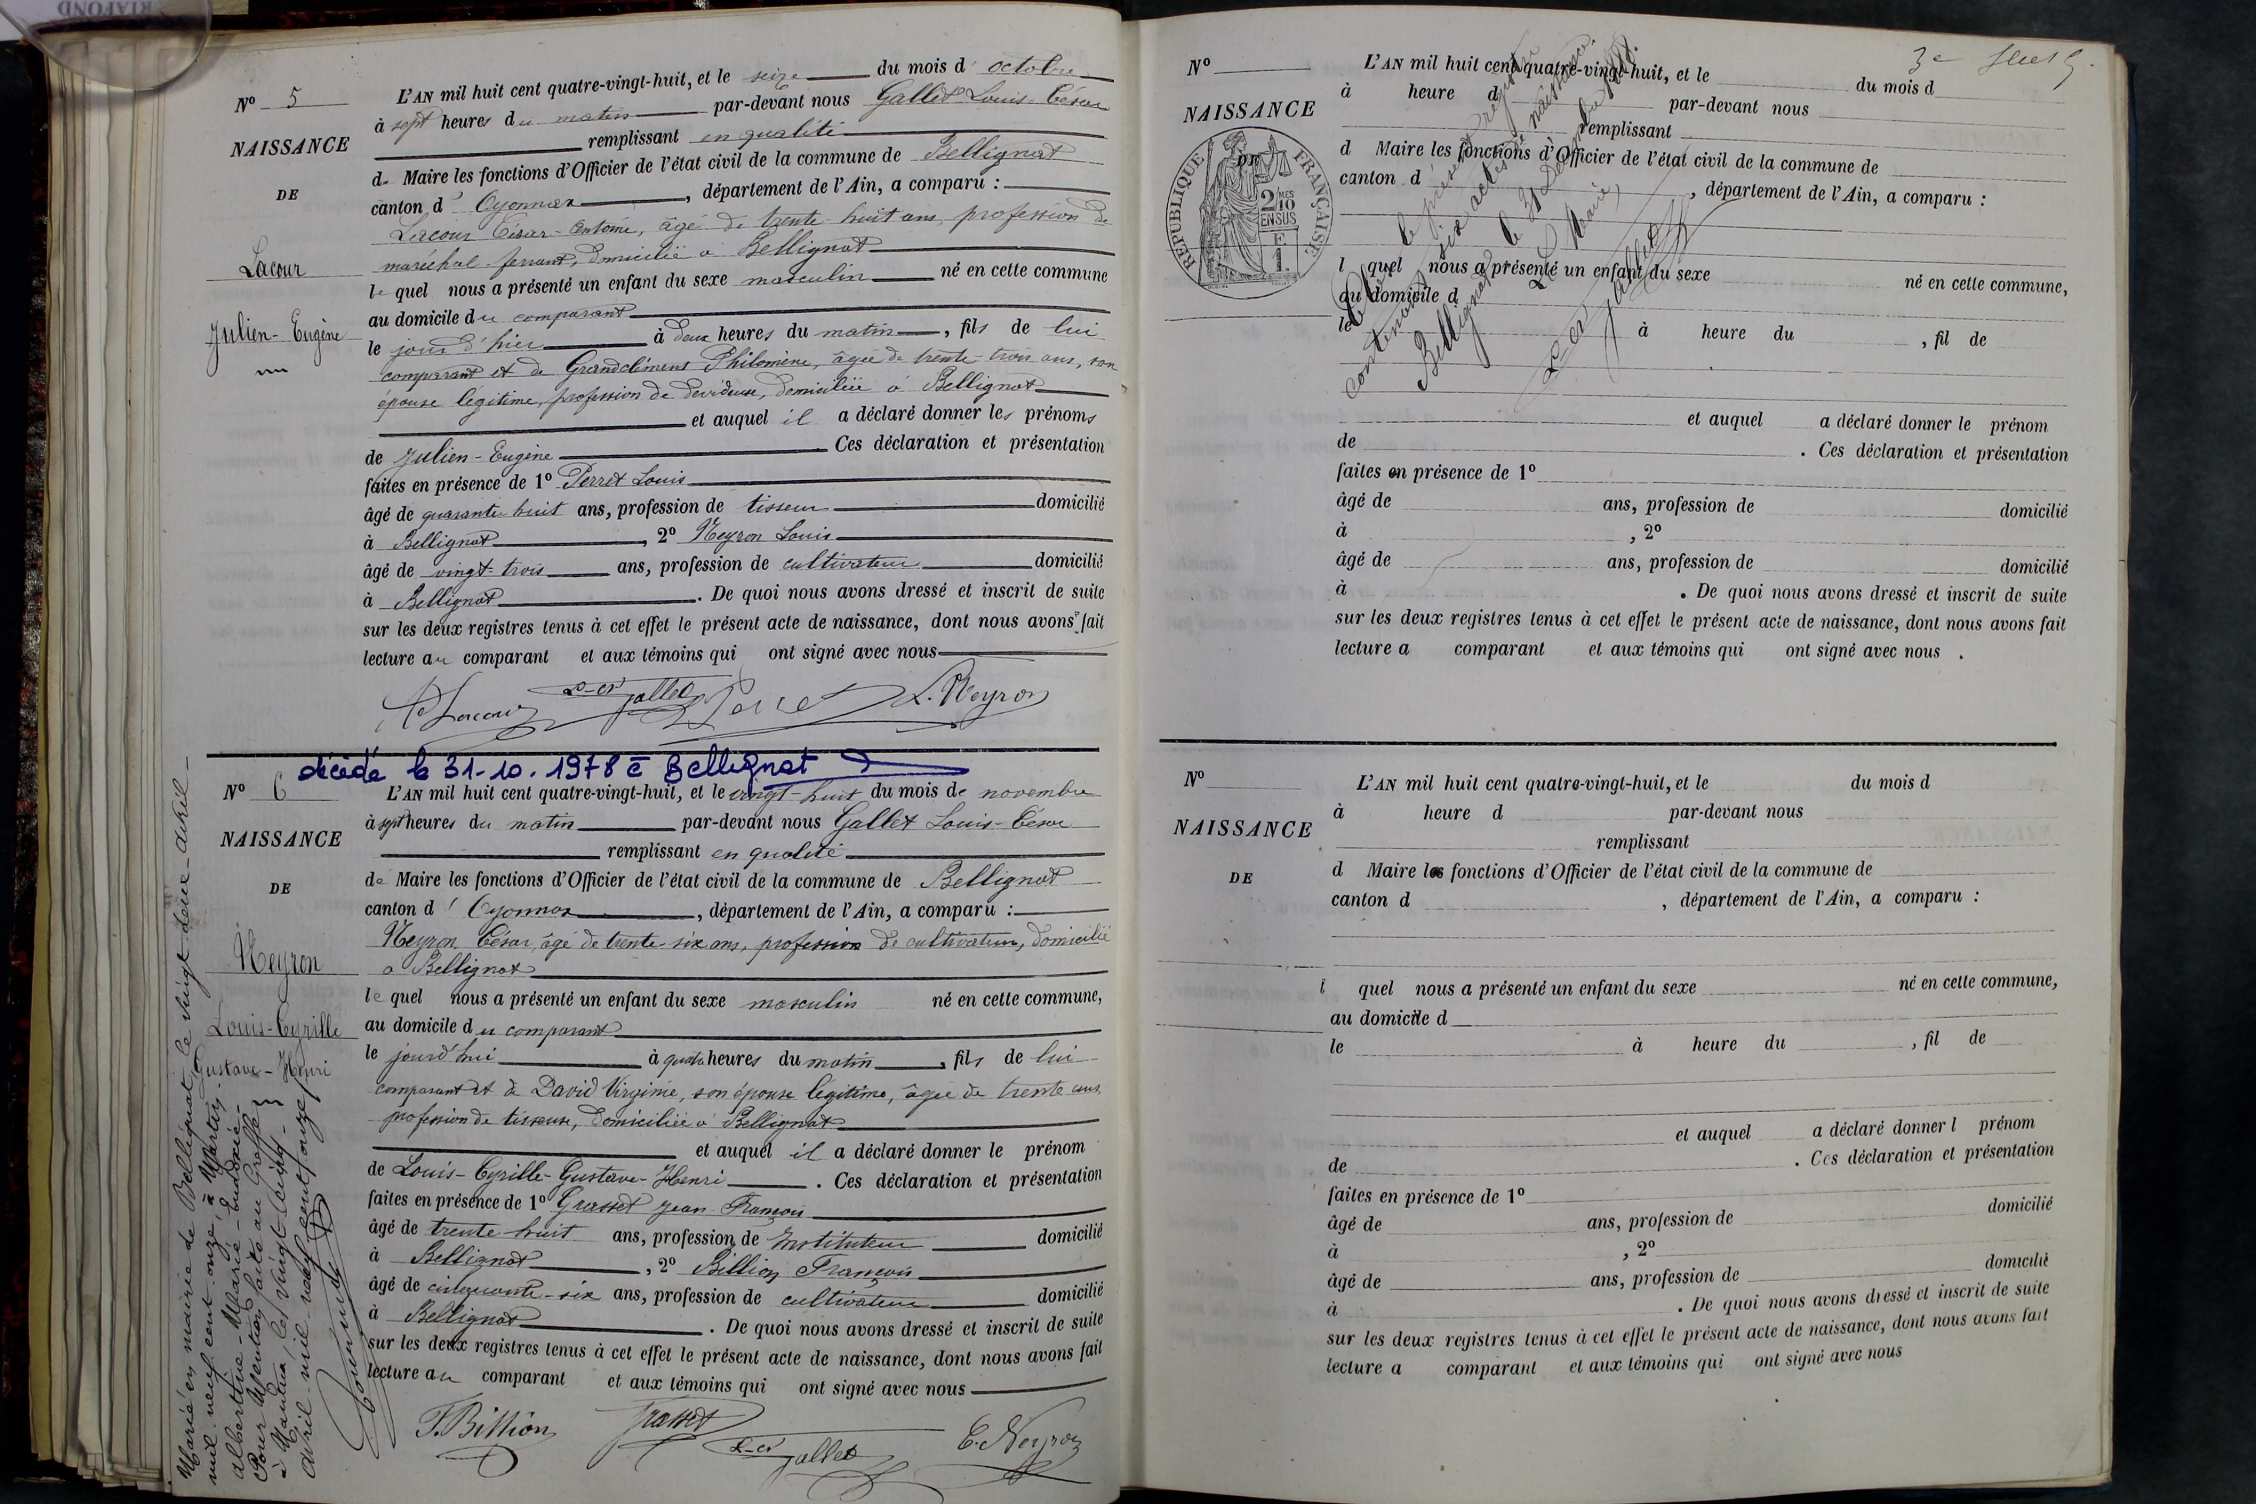 N° 5
NAISSANCE
DE
Lacour
Julien-Eugène
L'AN mil huit cent quatre-vingt-huit, et le seize du mois d'octobre
à sept heures du matin par-devant nous Gallet Louis-César
remplissant en qualité
de Maire les fonctions d'Officier de l'état civil de la commune de Bellignat
canton d'Oyonnax, département de l'Ain, a comparu :
Lacour César-Antoine, âgé de trente-huit ans, profession de
maréchal-ferrant, domicilié à Bellignat
le quel nous a présenté un enfant du sexe masculin né en cette commune
au domicile du comparant
le jour d'hier à deux heures du matin, fils de lui
comparant et de Grandclément Philomène, âgée de trente-trois ans, son
épouse légitime, profession de dévideuse, domiciliée à Bellignat
et auquel il a déclaré donner les prénoms
de Julien-Eugène Ces déclaration et présentation
faites en présence de 1° Perret Louis
âgé de quarante huit ans, profession de tisseur domicilié
à Bellignat, 2° Neyron Louis
âgé de vingt-trois ans, profession de cultivateur domicilié
à Bellignat. De quoi nous avons dressé et inscrit de suite
sur les deux registres tenus à cet effet le présent acte de naissance, dont nous avons fait
lecture au comparant et aux témoins qui ont signé avec nous
Lacour L-Cr Gallet Perret L. Neyron
décédé le 31-10.1978 à Bellignat
N° 6
NAISSANCE
DE
Neyron
Louis-Cyrille
Gustave-Henri
L'AN mil huit cent quatre-vingt-huit, et le vingt-huit du mois de novembre
à sept heures du matin par-devant nous Gallet Louis-César
remplissant en qualité
de Maire les fonctions d'Officier de l'état civil de la commune de Bellignat
canton d'Oyonnax, département de l'Ain, a comparu :
Neyron César, âgé de trente-six ans, profession de cultivateur, domicilié
à Bellignat
le quel nous a présenté un enfant du sexe masculin né en cette commune,
au domicile du comparant
le jourd'hui à quatre heures du matin, fils de lui
comparant et de David Virginie, son épouse légitime, âgée de trente ans
profession de tisseuse, domiciliée à Bellignat
et auquel il a déclaré donner le prénom
de Louis-Cyrille-Gustave-Henri. Ces déclaration et présentation
faites en présence de 1° Grasset Jean François
âgé de trente huit ans, profession de Instituteur domicilié
à Bellignat, 2° Billion François
âgé de cinquante-six ans, profession de cultivateur domicilié
à Bellignat. De quoi nous avons dressé et inscrit de suite
sur les deux registres tenus à cet effet le présent acte de naissance, dont nous avons fait
lecture au comparant et aux témoins qui ont signé avec nous
F. Billion Grasset L-Cr Gallet C. Neyron
Marié en mairie de Bellignat le vingt-deux-avril-
mil neuf cent onze à
albertine-Marie-eudoxie-
Pour Mention faite au Greffe
à Nantua, les vingt-cinq-
avril mil neuf cent onze
N°
NAISSANCE
RÉPUBLIQUE FRANÇAISE
2/10
MES
EN SUS
E
1.
3e
L'AN mil huit cent quatre-vingt-huit, et le du mois d
à heure d par-devant nous
remplissant
d Maire les fonctions d'Officier de l'état civil de la commune de
canton d , département de l'Ain, a comparu :
l quel nous a présenté un enfant du sexe né en cette commune,
au domicile d
le à heure du , fil de
et auquel a déclaré donner le prénom
de . Ces déclaration et présentation
faites en présence de 1°
âgé de ans, profession de domicilié
à , 2°
âgé de ans, profession de domicilié
à . De quoi nous avons dressé et inscrit de suite
sur les deux registres tenus à cet effet le présent acte de naissance, dont nous avons fait
lecture a comparant et aux témoins qui ont signé avec nous .
le présent registre
contenant six actes de naissance.
Bellignat le 31 Décembre 1888.
Le Maire,
L-Cr Gallet
N°
NAISSANCE
DE
L'AN mil huit cent quatre-vingt-huit, et le du mois d
à heure d par-devant nous
remplissant
d Maire les fonctions d'Officier de l'état civil de la commune de
canton d , département de l'Ain, a comparu :
l quel nous a présenté un enfant du sexe né en cette commune,
au domicile d
le à heure du , fil de
et auquel a déclaré donner l prénom
de . Ces déclaration et présentation
faites en présence de 1°
âgé de ans, profession de domicilié
à , 2°
âgé de ans, profession de domicilié
à . De quoi nous avons dressé et inscrit de suite
sur les deux registres tenus à cet effet le présent acte de naissance, dont nous avons fait
lecture a comparant et aux témoins qui ont signé avec nous